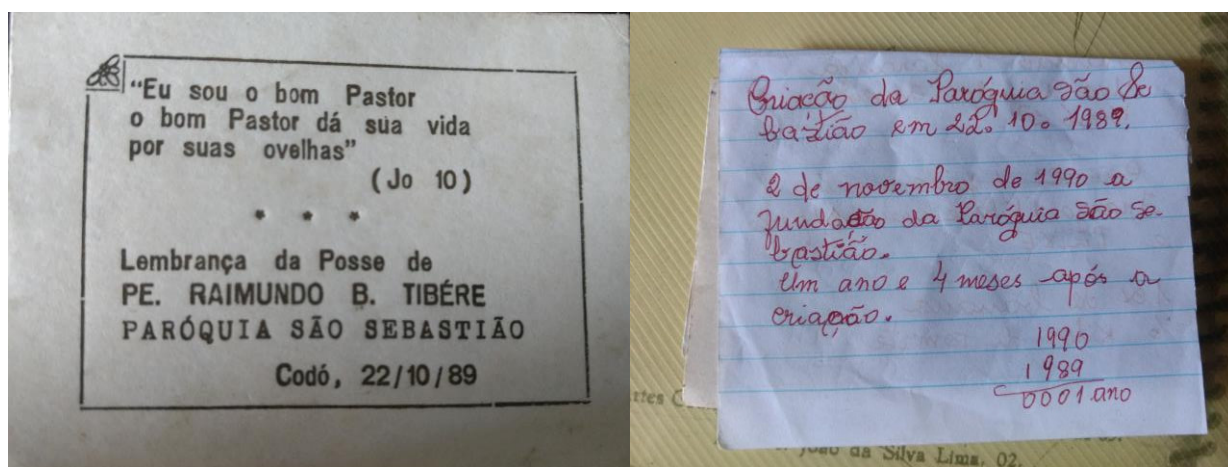 "Eu sou o bom Pastor
o bom Pastor dá sua vida
por suas ovelhas"
(Jo 10)
* * *
Lembrança da Posse de
PE. RAIMUNDO B. TIBÉRE
PARÓQUIA SÃO SEBASTIÃO
Codó, 22/10/89
Criação da Paróquia São Se
bastião em 22. 10. 1989.
2 de novembro de 1990 a
fundação da Paróquia São Se-
bastião.
Um ano e 4 meses após a
criação.
1990
1989
0001 ano
João da Silva Lima, 02.